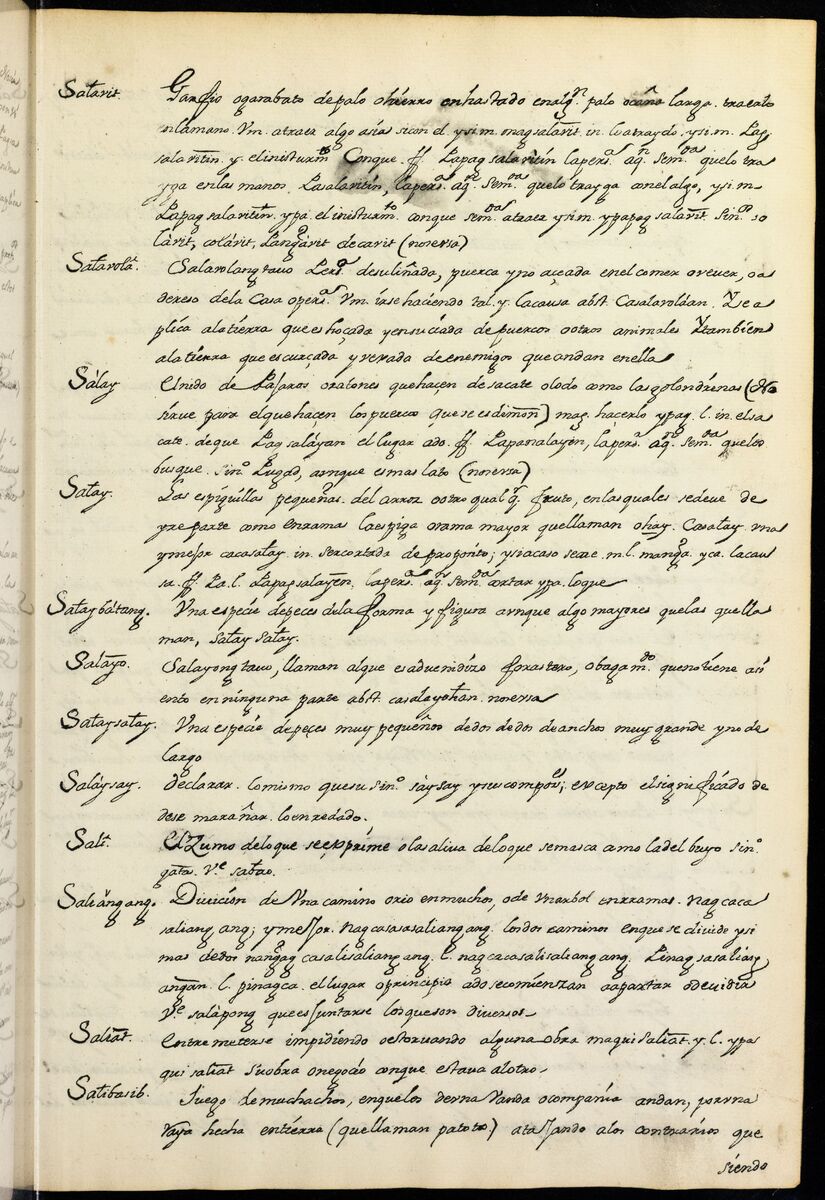 Salarit. Garfio ogarabato depalo ohierro enhastado enalg.n palo ocaña larga. traealo
enlamano. Vm. atraer algo asi sicon el. ysi m. magsalarit. in. lo atraydo. ysi m. Pag
salaritin. y. elinisturm.to Conque. ff. Papag salaritin lapers.a aq.n sem.da quelo tra
yga enlas manos. Pasalaritin, lapers.a aq.n sem.da quelo trayga conel algo, ysi m
Papag salaritin. ypa. el inisturm.to conque sem.da atraer ysi m. ypapag salarit. sin.os so
làrit, colárit, Langárit decarit (noversa)
Salarolà. Salarolang tauo Pers.a desaliñada, puerca yno açeada enel comer oveuer, oa
dereso dela Casa opers.a Vm. irse haciendo tal. y. lacausa abst. Casalaroláan. Yse a
plica alatierra que eshoçada yensuciada de puercos ootros animales Ytambien
alatierra que escurçada yverada de enemigos que andan enella
Sálay El nido de Pájaros oratones quehaçen de sacate olodo como las golondrinas (No
sirue para elquehaçen los puercos que se es dimon) mag. hacerlo ypag. l. in. elsa
cate. deque Pag salàyan el lugar ado. ff. Lapasalayen, lapers.a aq.n sem.da quelos
busque. sin.o Pugad, aunque es mas lato (noversa)
Salay. Las espiguillas pequeñas. del arroz ootro qual q.r fruto, enlasquales sedeue de
yreparte como enramas laespiga orama mayor quellaman ohay. Casalay vna
ymejor cacasalay. in. sercortada deproposito; ysiacaso serae. m. l. manga. yca. lacau
sa. ff. Pa. l. Papagsalayen, lapers.a aq.n sem.da cortar ypa. loque
Salaybátang. Vna especie depeces dela forma y figura avnque algo mayores quelas quella
man, salay salay.
Salàyo. Salayong tauo, llaman alque es aduenidizo forastero, obagam.do quenotiene asi
ento en ninguna parte abst. casalayohan. noversa
Salaysalay. Vna especie depeçes muy pequeños dedos dedos deanchos muy grande yno de
largo
Saláysay. declarar. lomismo quesu sin.o sàysay ysus compos.es; excepto elsignificado de
dese marañar. loenredado.
Sali. El Zumo deloque se exprime olasaliva deloque semasca como ladel buyo sin.o
gata. V.e sabao.
Saliángang. Diuición de Vna camino orio enmuchos, ode vnarbol enrramas. nag caca
saliang ang; ymejor. nag casasasaliang ang. losdos caminos enque se diuide ysi
mas dedos nangag casalisaliang ang. l. nag cacasalisaliang ang. Pinag sasaliang
angan. l. pinagca. el lugar oprincipio adosecomienzan aapartar odiuidir
V.e salàpong que es juntarse losqueson diuersos
Saliàt. Entremeterse impidiendo oestoruando alguna obra maquisaliat. y. l. ypa
qui saliat suobra onegoçio conque estaua alotro.
Salibasib. Juego demuchachos, enquelos deuna Vanda ocompañia andan, poruna
raya hecha entierra (quellaman patoto) atajando alos contrarios que
siendo